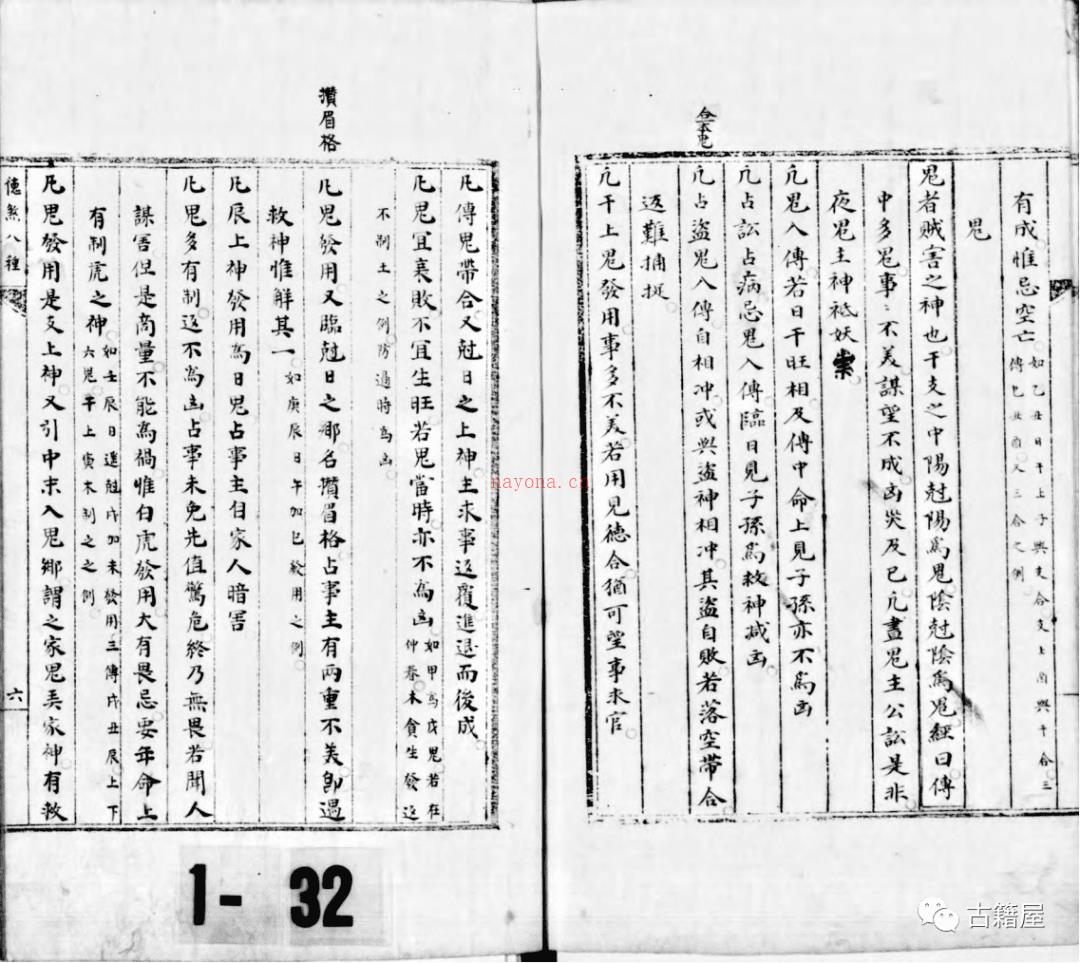 有成惟忌空亡如乙丑日干上子與支合支上酉與干合三傳巳丑酉又三合之例
鬼
鬼者賊害之神也干支之中陽尅陽爲鬼陰尅陰爲鬼經曰傳
中多鬼事〻不美謀望不成凶災及己凢晝鬼主公訟是非
夜鬼主神祗妖祟
凢鬼入傳若日干旺相及傳中命上見子孫亦不爲凶
凢占訟占病忌鬼入傳臨日見子孫爲救神减凶
凢占盗鬼入傳自相冲或與盗神相冲其盗自敗若落空帶合
返難捕捉
凢干上鬼發用事多不美若用見德合猶可望事求官
凢傳鬼帶合又尅日之上神主求事返覆進退而後成
凢鬼宜衰敗不宜生旺若鬼當時亦不爲凶如甲爲戊鬼若在仲春木貪生發返
不制土之例防過時爲凶
攢眉格
凢鬼發用又臨尅日之鄉名攢眉格占事主有兩重不美卽遇
救神惟解其一如庚辰日午加巳發用之例
凢辰上神發用爲日鬼占事主自家人暗害
凢鬼多有制返不爲凶占事未免先值驚危終乃無畏若聞人
謀害但是商量不能爲禍惟白虎發用大有畏忌要年命上
有制虎之神如壬辰日進尅戌加未發用三傳戌丑辰上下六鬼干上寅木制之之例
凢鬼發用是支上神又引中末入鬼鄉謂之家鬼弄家神有救
德煞八種
六
1- 32
nayona.cn
古籍屋